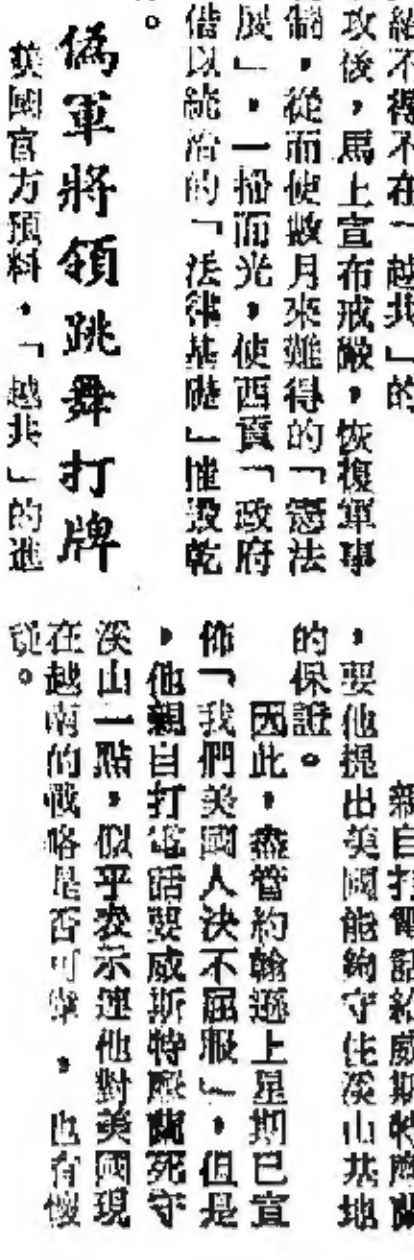 紹不得不在「越共」的
攻後，馬上宣布戒嚴，恢複軍事
制，從而使數月來難得的「憲法
展」，一掃而光，使西貢「政府
借以統治的「法律基礎」摧毀乾
。
偽軍將領跳舞打牌
美國官方預料，「越共」的進
親自打電話給威斯特摩蘭
，要他提出美國能夠守住溪山基地
的保證。
因此，盡管約翰遜上星期已宣
佈「我們美國人決不屈服」，但是
，他親自打電話要威斯特摩蘭死守
溪山一點，似乎表示連他對美國現
在越南的戰略是否可靠，也有懷
疑。